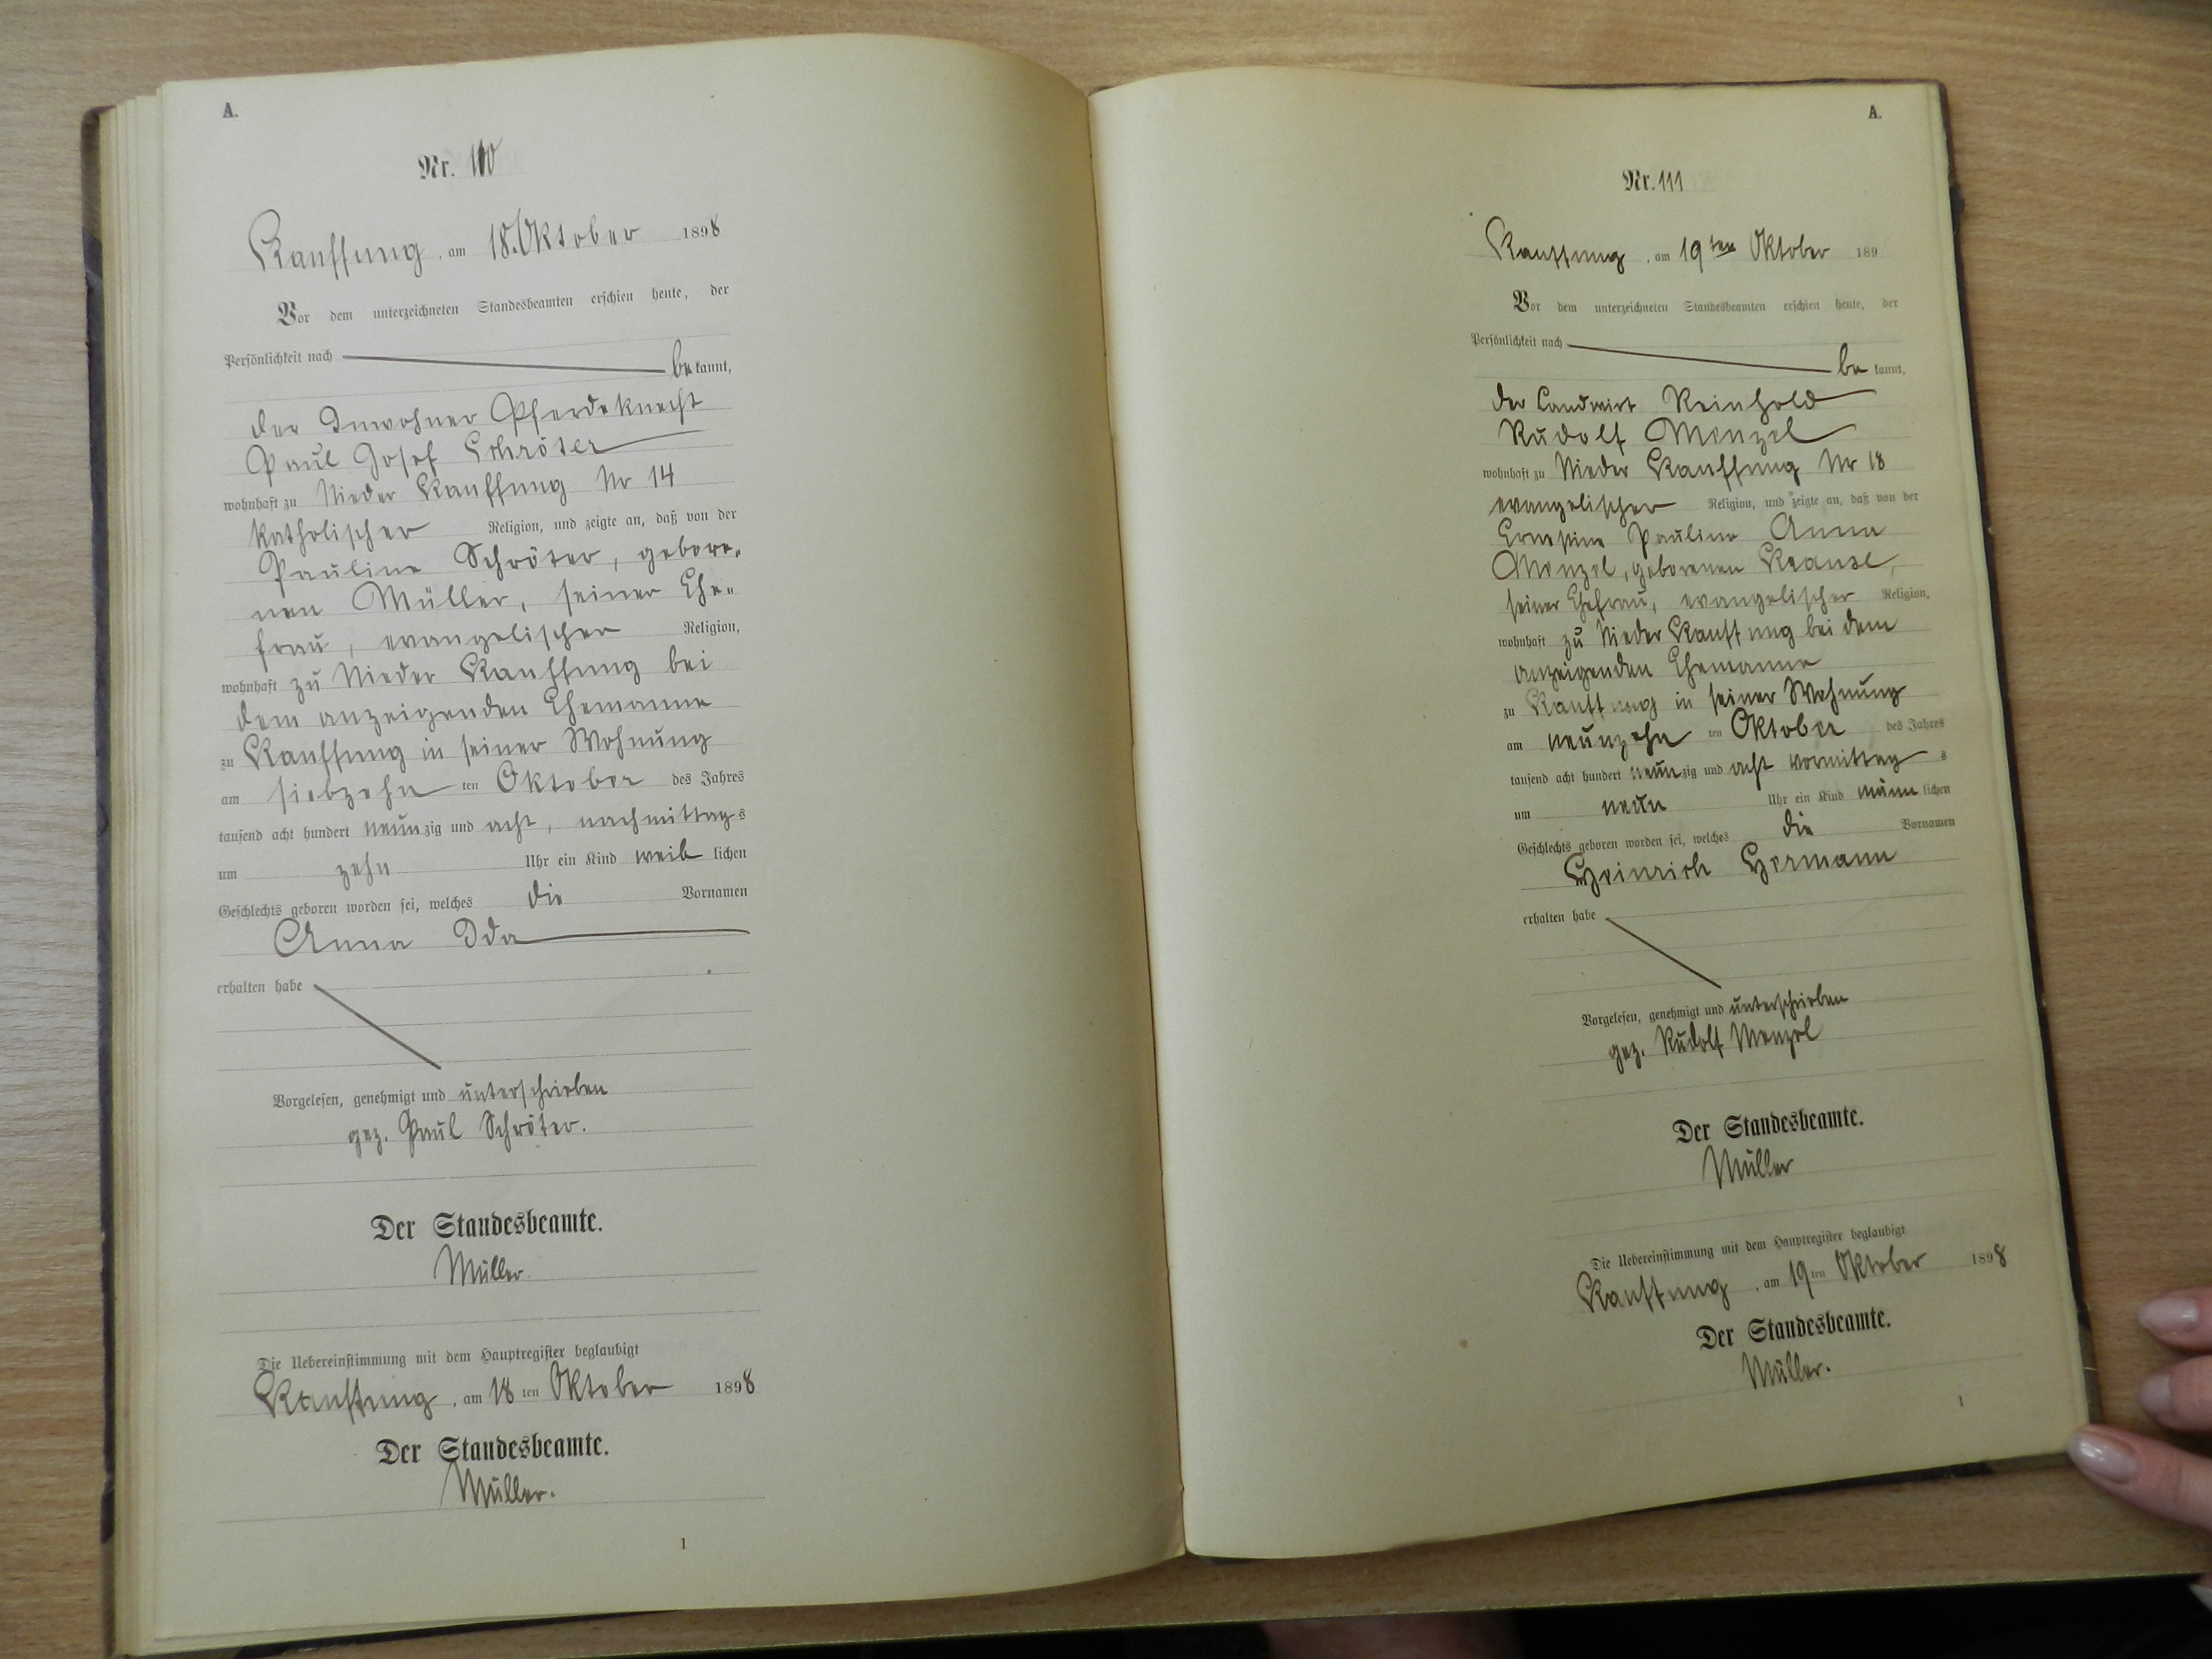 A.
Nr. 110
Kauffung, am 18. Oktober 1898
Vor dem unterzeichneten Standesbeamten erschien heute, der
Persönlichkeit nach
be kannt,
der Inwohner Pferdeknecht
Paul Josef Schröter
wohnhaft zu Nieder Kauffung Nr 14
katholischer Religion, und zeigte an, daß von der
Pauline Schröter, gebore-
nen Müller, seiner Ehe-
frau, evangelischer Religion,
wohnhaft zu Nieder Kauffung bei
dem anzeigenden Ehemanne
zu Kauffung in seiner Wohnung
am siebzehn ten Oktober des Jahres
tausend acht hundert neunzig und acht, nachmittags
um zehn Uhr ein Kind weiblichen
Geschlechts geboren worden sei, welches die Vornamen
Anna Ida
erhalten habe
Vorgelesen, genehmigt und unterschrieben
gez. Paul Schröter.
Der Standesbeamte.
Müller.
Die Uebereinstimmung mit dem Hauptregister beglaubigt
Kauffung, am 18 ten Oktober 1898
Der Standesbeamte.
Müller.
1
A.
Nr. 111
Kauffung, am 19ten Oktober 189
Vor dem unterzeichneten Standesbeamten erschien heute, der
Persönlichkeit nach
be kannt,
der Landwirt Reinhold
Rudolf Menzel
wohnhaft zu Nieder Kauffung Nr 18
evangelischer Religion, und zeigte an, daß von der
Ernestine Pauline Anna
Menzel, geborenen Krause,
seiner Ehefrau, evangelischer Religion,
wohnhaft zu Nieder Kauffung bei dem
anzeigenden Ehemanne
zu Kauffung in seiner Wohnung
am neunzehn ten Oktober des Jahres
tausend acht hundert neunzig und acht vormittags
um neun Uhr ein Kind männlichen
Geschlechts geboren worden sei, welches die Vornamen
Heinrich Hermann
erhalten habe
Vorgelesen, genehmigt und unterschrieben
gez. Rudolf Menzel
Der Standesbeamte.
Müller
Die Uebereinstimmung mit dem Hauptregister beglaubigt
Kauffung, am 19 ten Oktober 1898
Der Standesbeamte.
Müller.
1